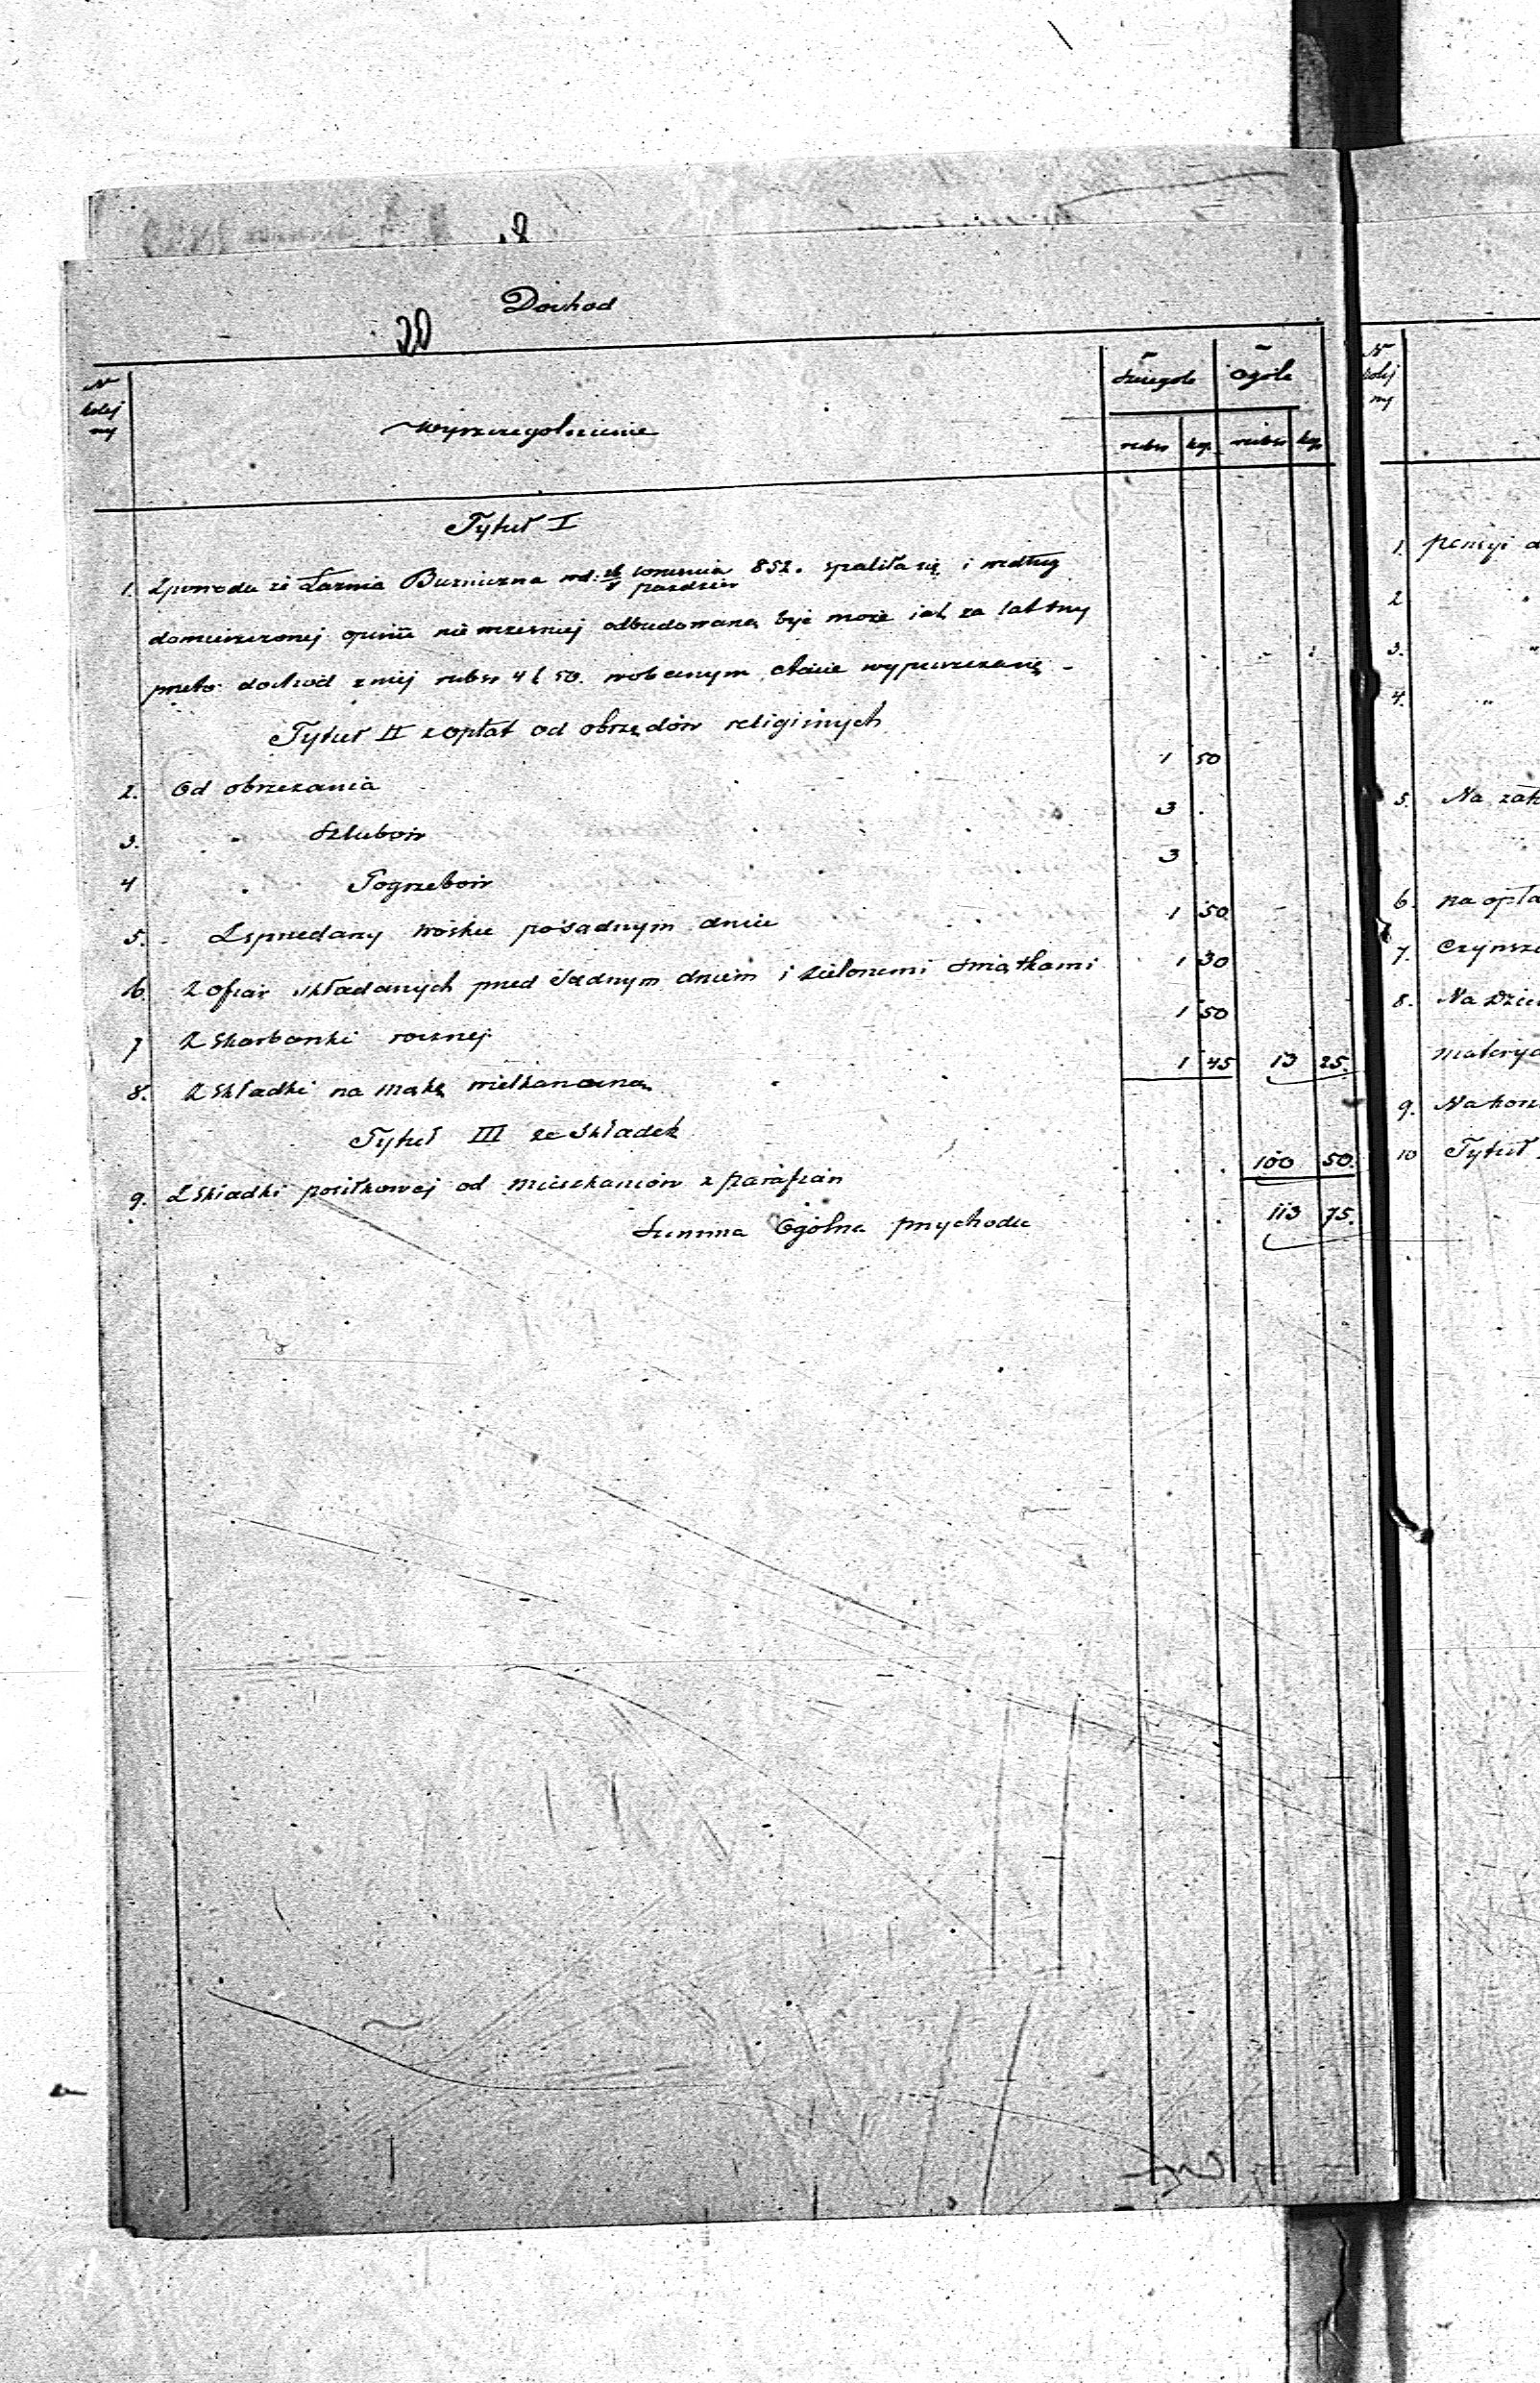 Dochod
20
N kolej ny
Wyszczegolnienie
Szczegole
Ogóle
rubsr kop. rubsr kop.
Tytuł I
1. Zpowodu że Łaznia Buzniczna wd: 26/8 Wrzesnia/pazdzier 852. spaliła się, i według
domieszczonej opinii nie wczesniej odbudowaną być może jak za lat trzy
przeto dochod z niej rubsr 41 50. wobecnym etacie wypuszcza się -
Tytuł II z opłat od obrzędów religijnych
2. Od obrzezania 1 50
3. " Szlubow 3 .
4 " Pogrzebow 3 .
5. Zsprzedarzy wosku po sadnym dniu 1 50
6 Z ofiar składanych pred Sadnym dniem i Zielonemi Swiątkami 1 30
7 Z Skarbonki rocznej 1 50
8. Z Składki na mąkę wielkanocną 1 45 13 25.
Tytuł III ze Składek
9. Z Składki posiłkowej od mieszkancow z parafian 100 50.
Summa Ogólna przychodu 113 75.
N kolej ny
1. pensyi
2 "
3. "
4. "
5. Na
6. na
7.
8. Na
9.
10 Tytuł